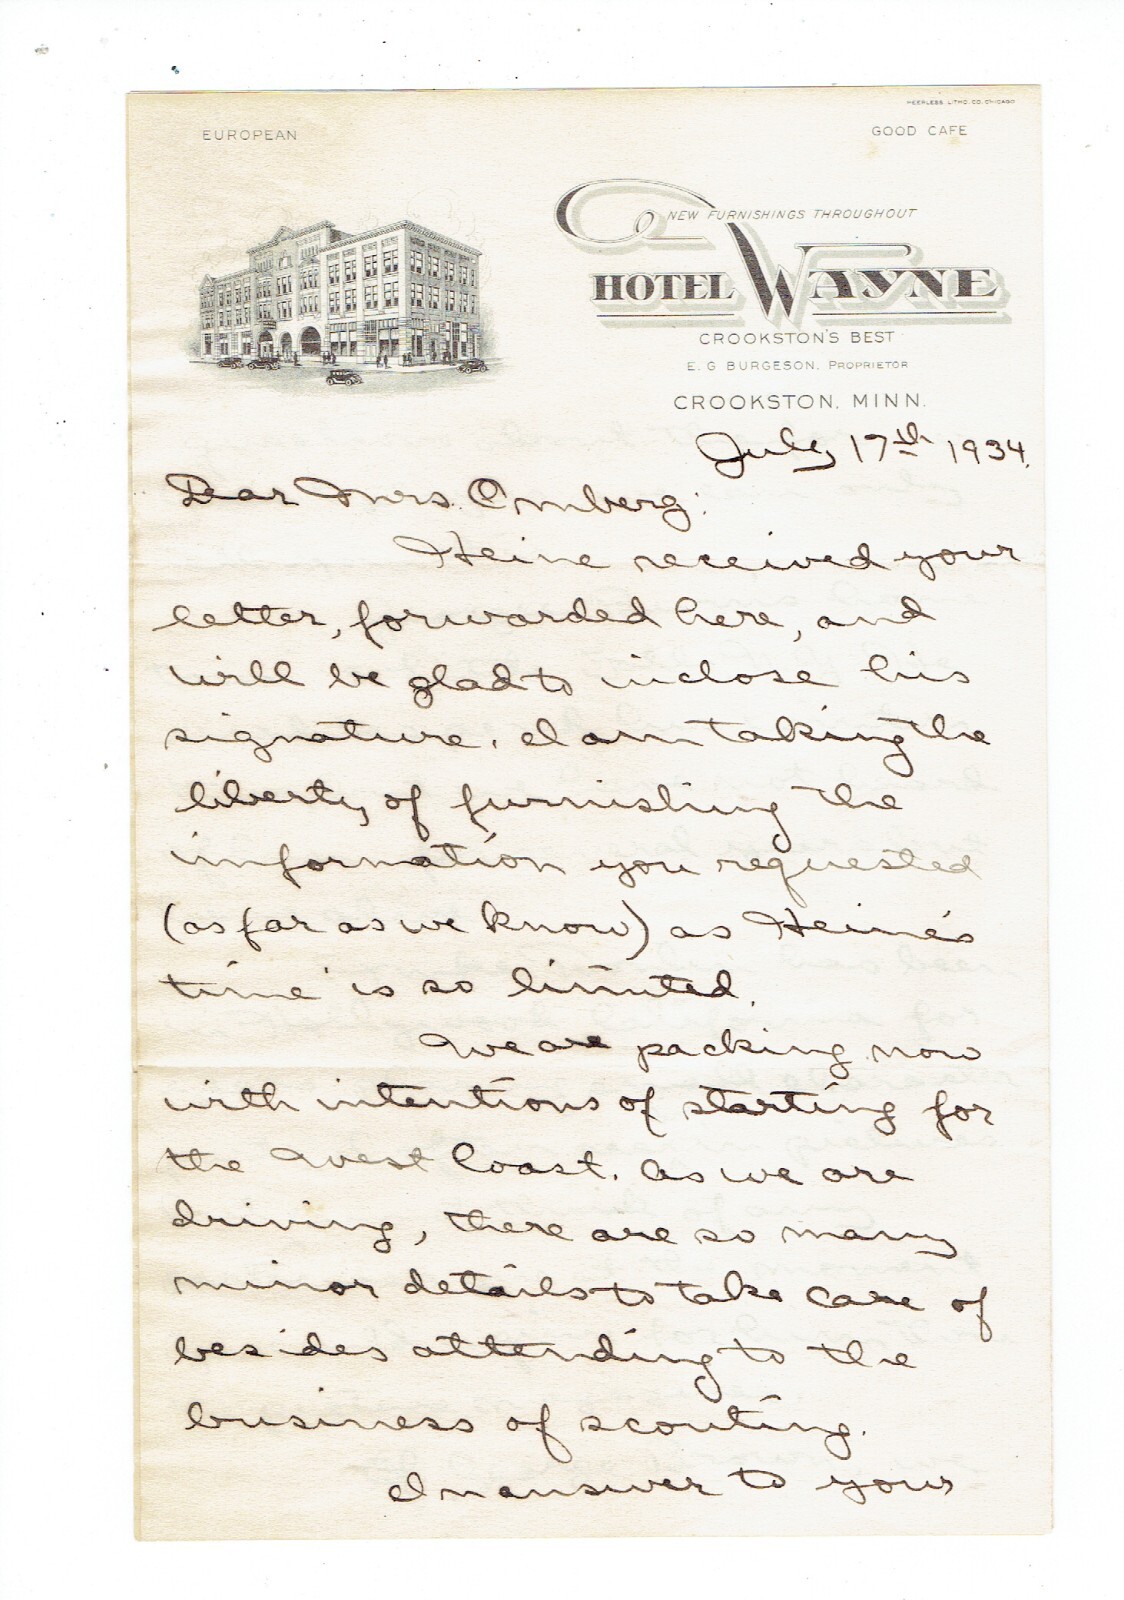 PEERLESS LITHO. CO. CHICAGO
EUROPEAN
GOOD CAFE
NEW FURNISHINGS THROUGHOUT
HOTEL WAYNE
CROOKSTON'S BEST
E. G BURGESON, PROPRIETOR
CROOKSTON, MINN.
July 17th 1934.
Dear Mrs. Omberg:
Heine received your
letter, forwarded here, and
will be glad to inclose his
signature. I am taking the
liberty of furnishing the
information you requested
(as far as we know) as Heine's
time is so limited.
We are packing now
with intentions of starting for
the West Coast. As we are
driving, there are so many
minor details to take care of
besides attending to the
business of scouting.
In answer to your